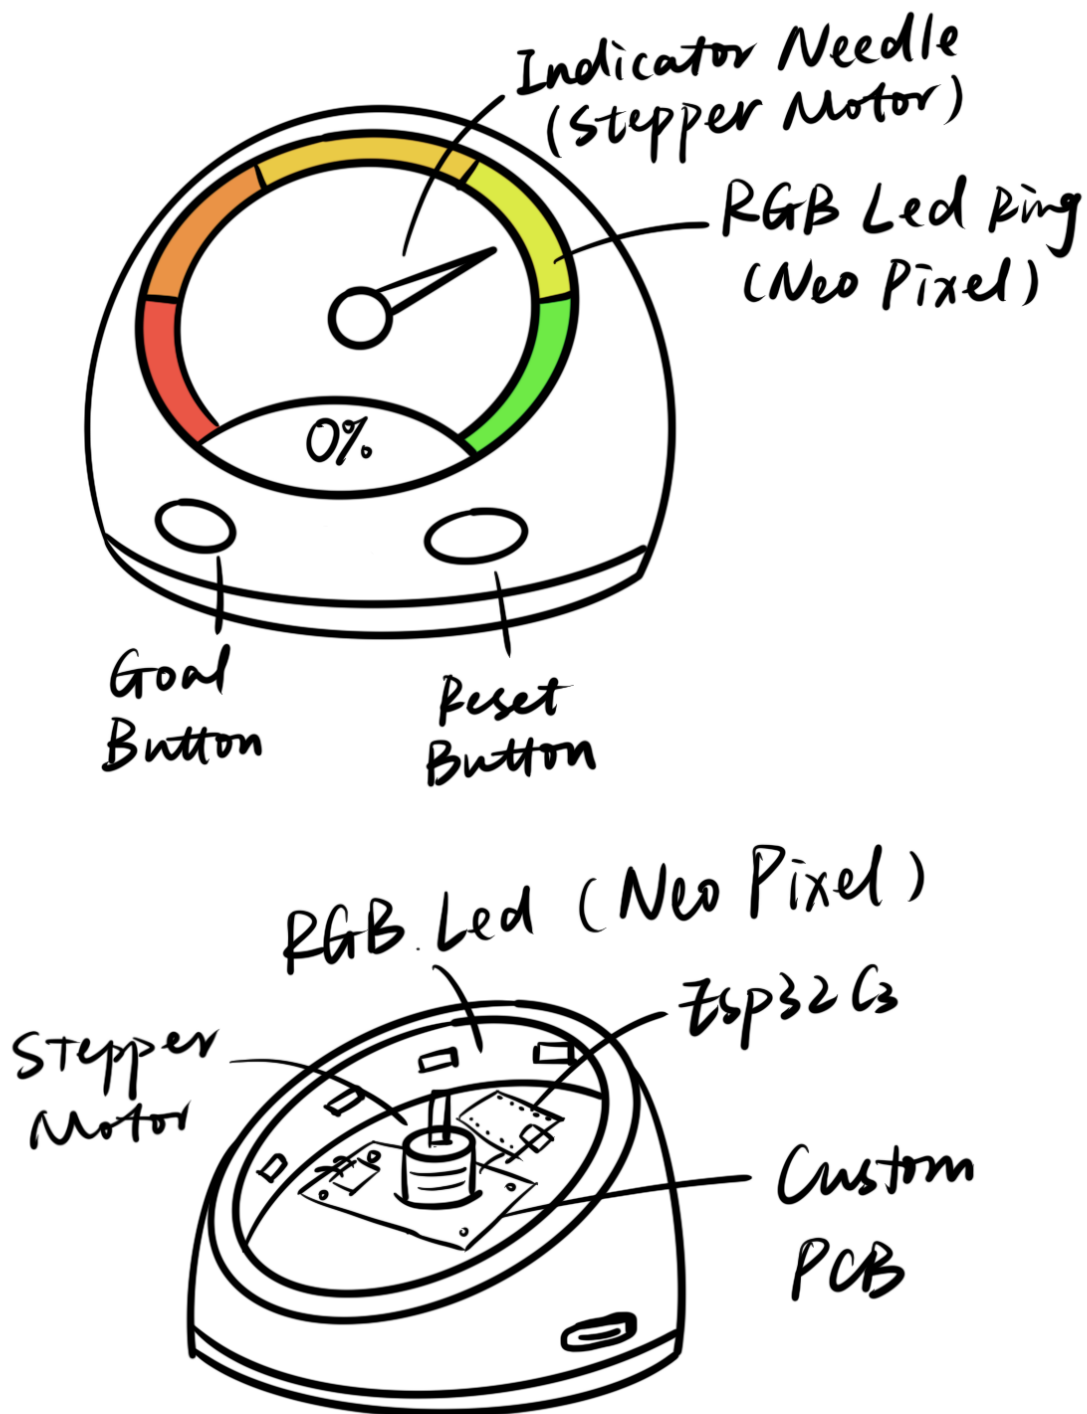 Indicator Needle
(Stepper Motor)
RGB Led Ring
(Neo Pixel)
0%
Goal
Button
Reset
Button
RGB Led (Neo Pixel)
Esp32 C3
Stepper
Motor
Custom
PCB